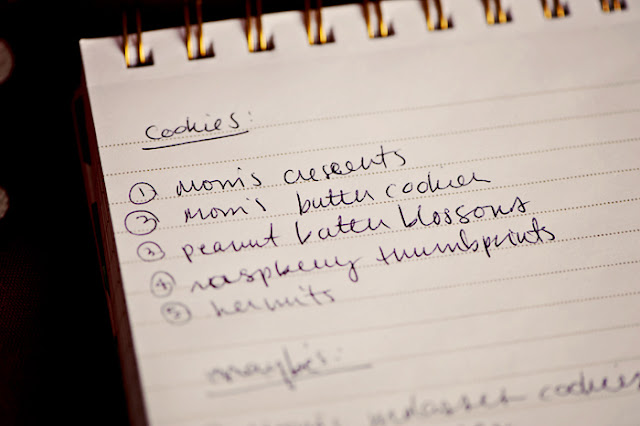 Cookies:
① mom's crescents
② mom's butter cookies
③ peanut butter blossoms
④ raspberry thumbprints
⑤ hermits
maybe's:
molasses cookies